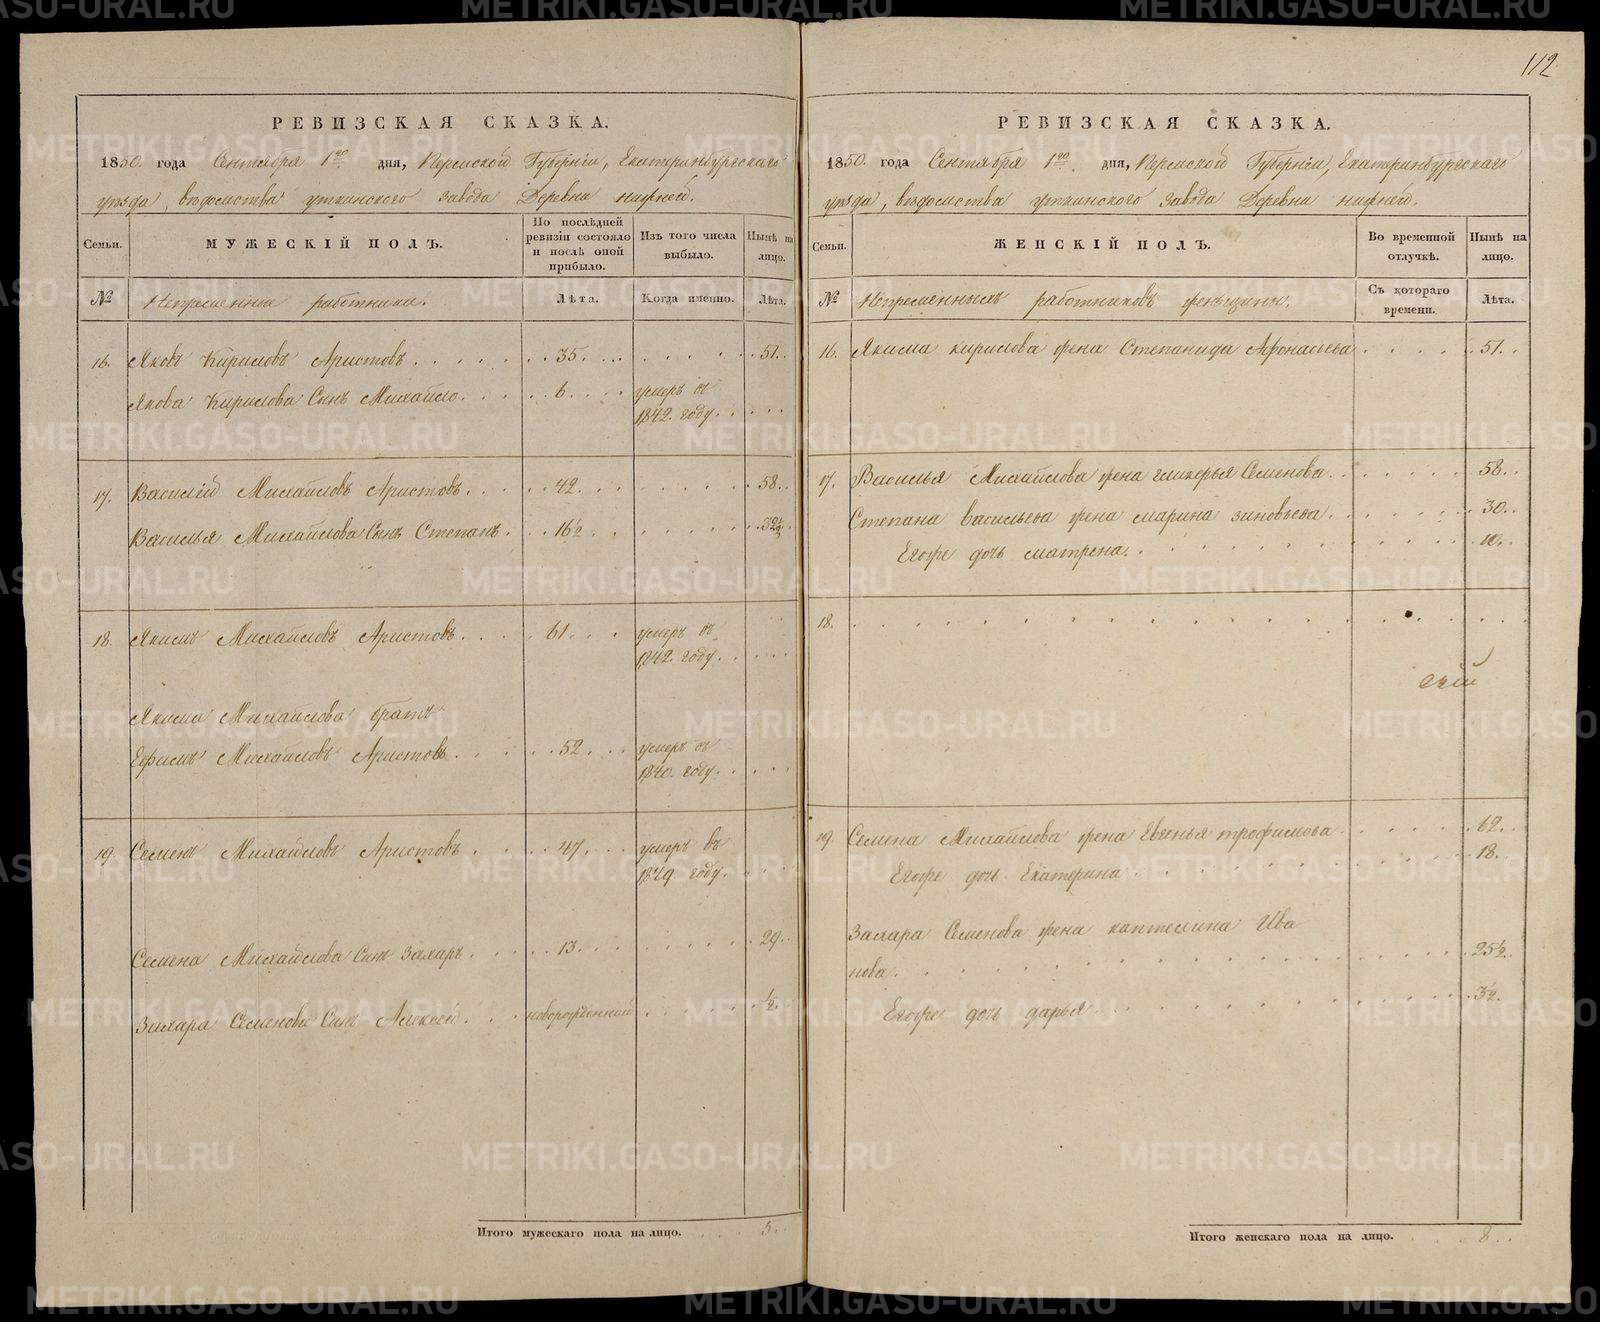 112
РЕВИЗСКАЯ СКАЗКА.
1850. года Сентября 1го дня, Пермской Губерніи, Екатеринбургскаго
уѣзда, вѣдомства уткинского завода Деревни нижней.
Семьи.
МУЖЕСКІЙ ПОЛЪ.
По послѣдней ревизіи состояло и послѣ оной прибыло.
Изъ того числа выбыло.
Нынѣ на лицо.
№
Непременные работники.
Лѣта.
Когда именно.
Лѣта.
16. Яковъ Кириловъ Аристовъ . . . . 35. . . . 51.
Якова Кирилова Сынъ Михайло . . . 6. . . умеръ въ
1842. году. . . .
17. Василій Михайловъ Аристовъ . . . 42. . . . 58.
Василья Михайлова Сынъ Степанъ . . . 16½ . . . 32½.
18. Якимъ Михайловъ Аристовъ . . . 61. . . умеръ въ
1842. году. . . .
Якима Михайлова братъ
Ефимъ Михайловъ Аристовъ . . . 52. . . умеръ въ
1840. году. . . .
19. Семенъ Михайловъ Аристовъ . . . 47. . . умеръ въ
1849. году. . . .
Семена Михайлова Сынъ Захаръ . . . 13. . . . 29.
Захара Семенова Сынъ Алексей . . . новорожденный . . . ½.
Итого мужескаго пола на лицо. . . . 5.
РЕВИЗСКАЯ СКАЗКА.
1850. года Сентября 1го. дня, Пермской Губерніи, Екатеринбургскаго
уѣзда, вѣдомства уткинского завода Деревни нижней.
Семьи.
ЖЕНСКІЙ ПОЛЪ.
Во временной отлучкѣ.
Нынѣ на лицо.
№
Непременныхъ работниковъ женщины.
Съ котораго времени.
Лѣта.
16. Якима кирилова жена Степанида Афонасьева . . . . 51.
17. Василья Михайлова жена гликерья Семенова . . . . 58.
Степана васильева жена марина зиновьева . . . . 30.
Егоже дочь матрена . . . . 10.
18. . . . .
19. Семина Михайлова жена Евгенья трофимова . . . . 62.
Егоже дочь Екатерина . . . . 18.
Захара Семенова жена каптелина Ива
нова . . . . 25½.
Егоже дочь дарья . . . . 3½.
Итого женскаго пола на лицо. . . . 8.
METRIKI.GASO-URAL.RU